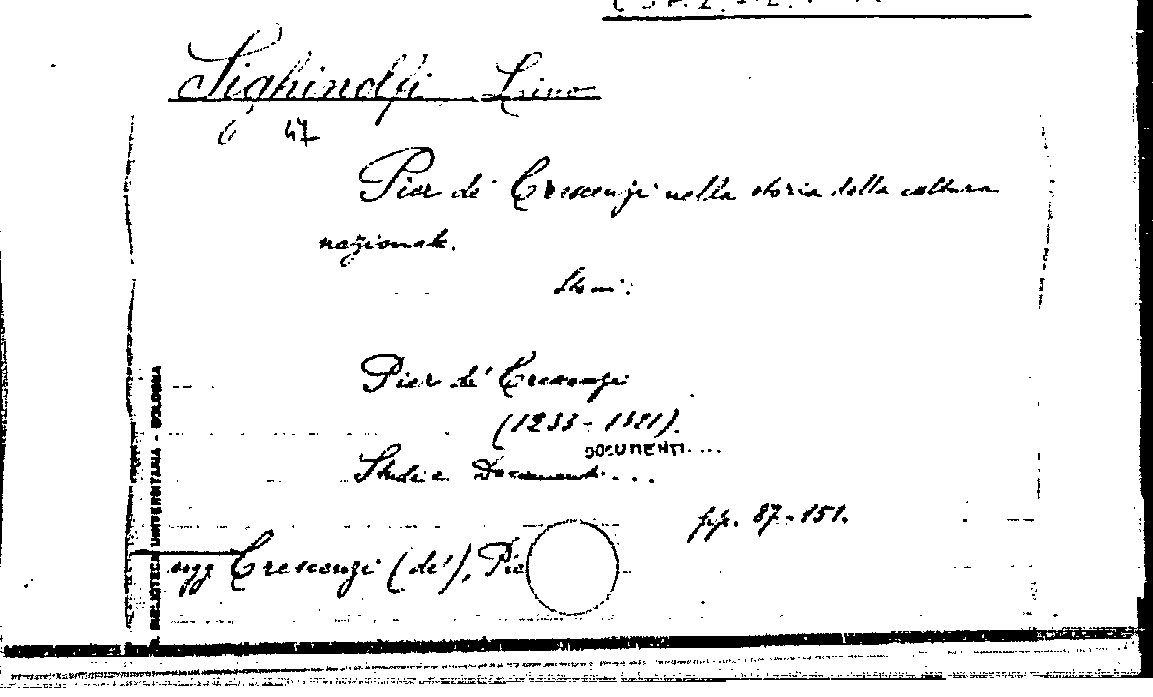 Sighinolfi Lino
47
Pier de' Crescenzi nella storia della cultura
nazionale.
Pier de' Crescenzi
(1233 - 1321).
DOCUMENTI....
Studi e Documenti...
pp. 87-151.
sogg Crescenzi (de'), Pie
R. BIBLIOTECA UNIVERSITARIA - BOLOGNA